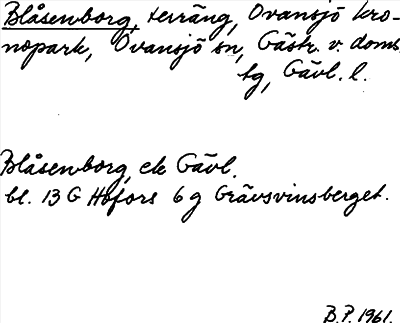 Blåsenborg, terräng, Ovansjö kro-
nopark, Ovansjö sn, Gästr. v. doms.
tg, Gävl. l.
Blåsenborg, ek Gävl.
bl. 13 G Hofors 6 g Grävsvinsberget.
B.P. 1961.